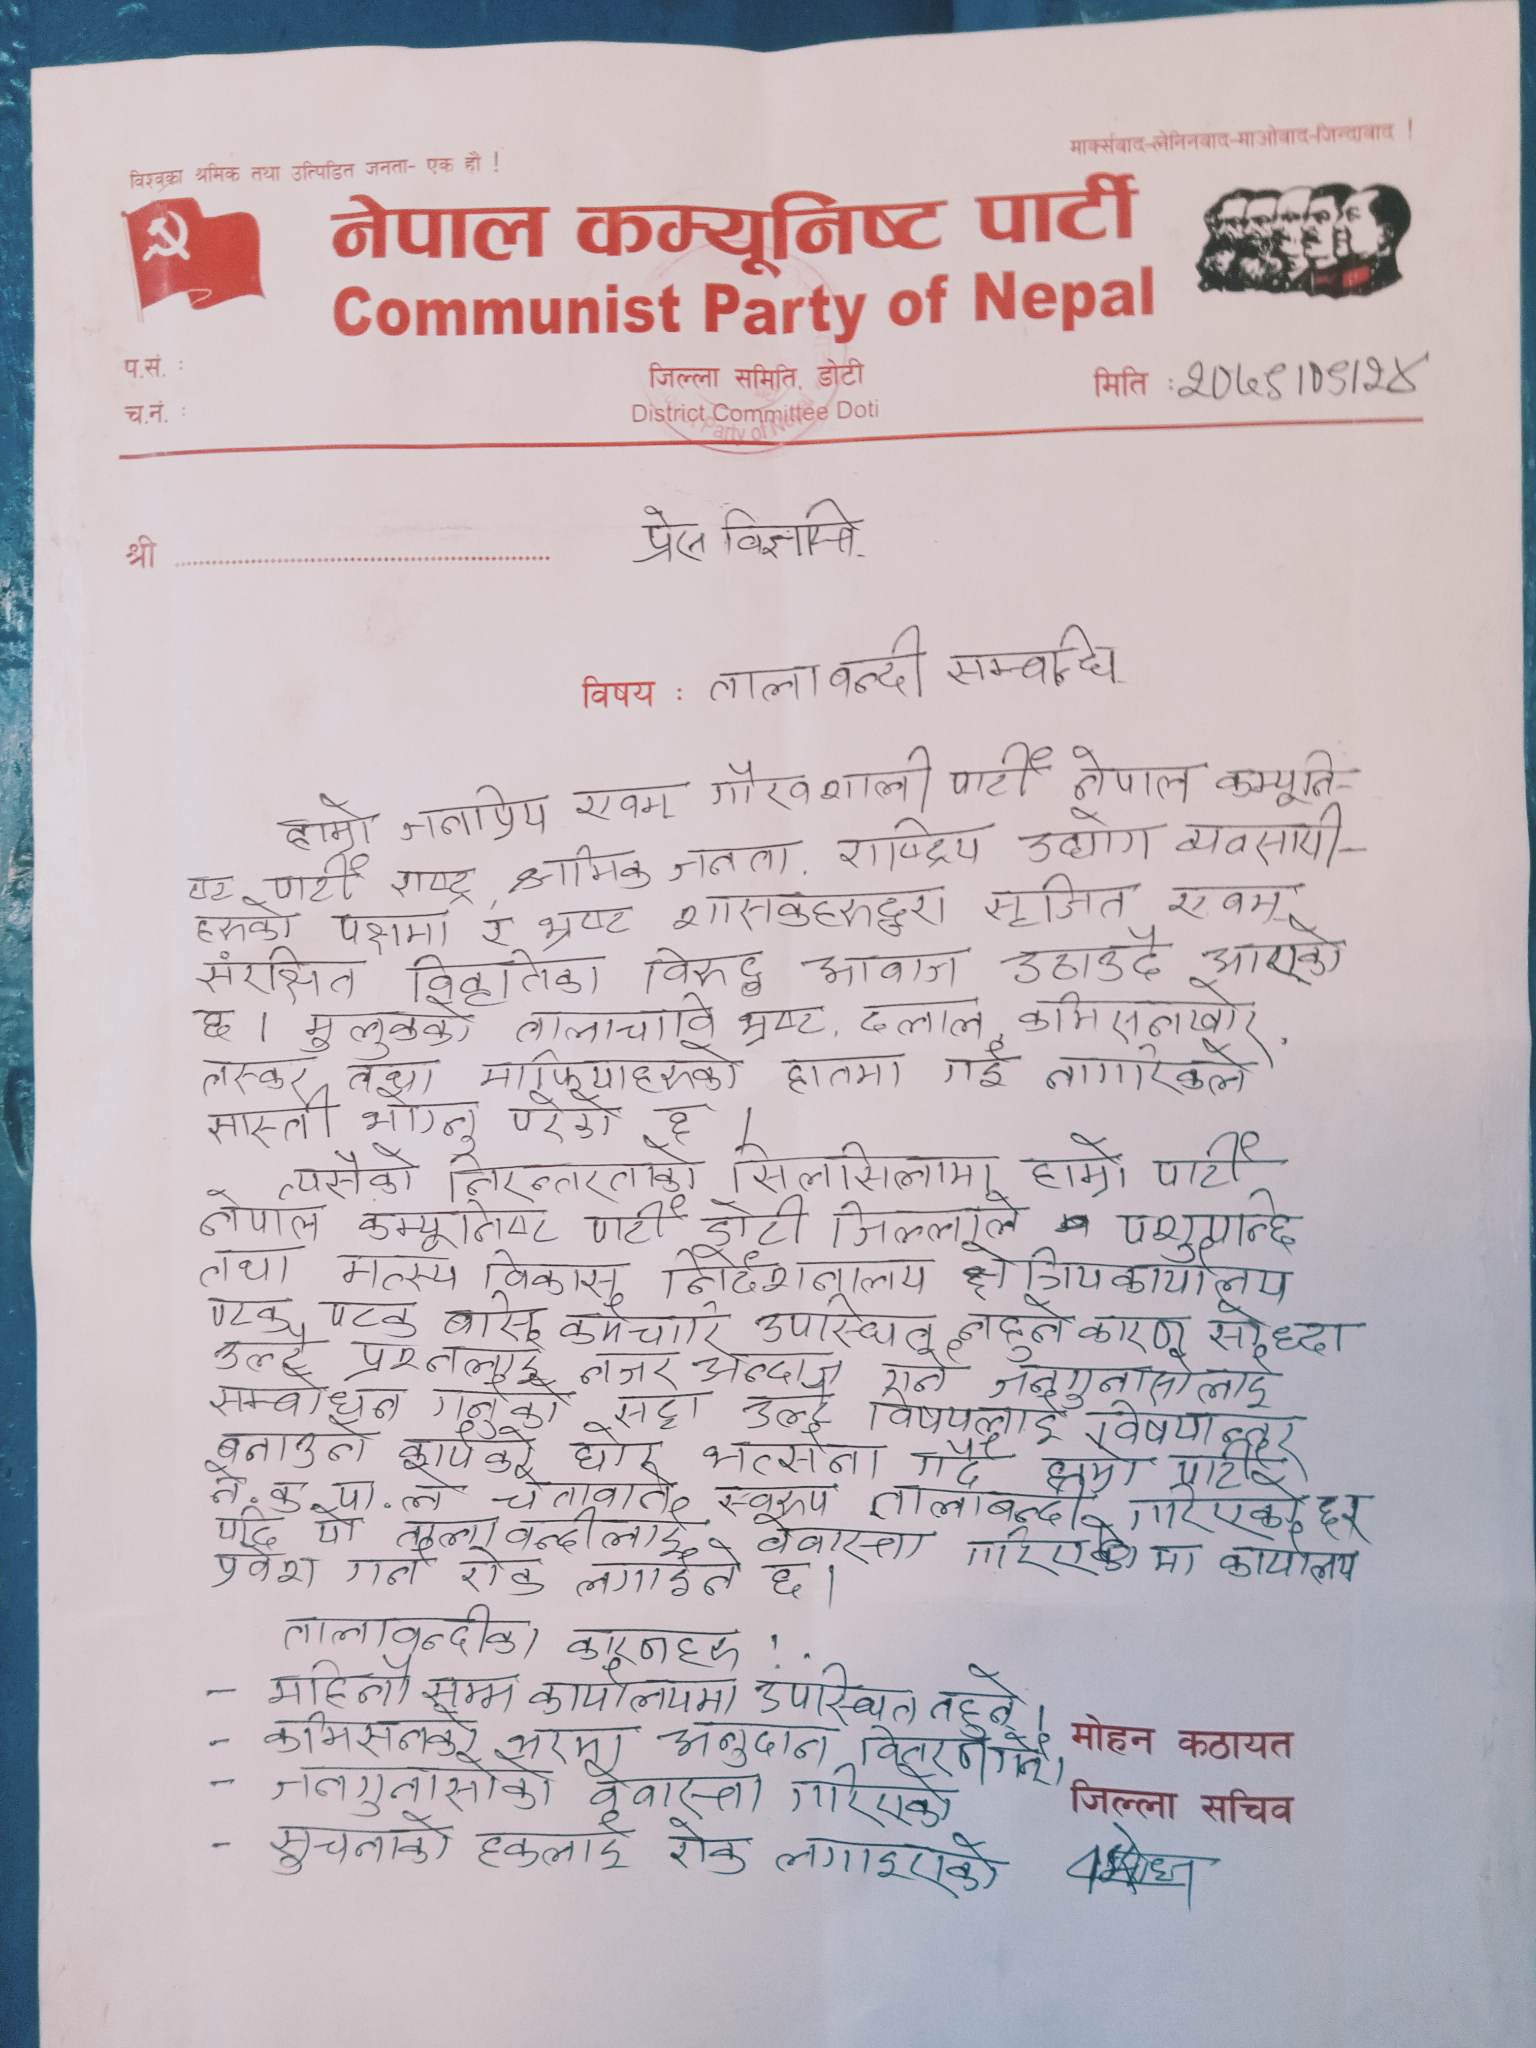 विश्वका श्रमिक तथा उत्पिडित जनता- एक हौ !
मार्क्सवाद-लेनिनवाद-माओवाद-जिन्दावाद !
नेपाल कम्यूनिष्ट पार्टी
Communist Party of Nepal
प.सं. :
जिल्ला समिति, डोटी
मिति :
च.नं. :
District Committee Doti
Party of Nepal
प्रेस विज्ञप्ति
श्री
विषय : तालाबन्दी सम्बन्धि
हाम्रो जनप्रिय एवम् गौरवशाली पार्टी नेपाल कम्यूनि-
ष्ट पार्टी राष्ट्र, श्रमिक जनता, राष्ट्रिय उद्योग व्यवसायी-
हरुको पक्षमा र भ्रष्ट शासकहरुद्वारा सृजित एवम्
संरक्षित विकृतिका विरुद्ध आवाज उठाउदै आएको
छ । मुलुकको तालाचावि भ्रष्ट, दलाल, कमिसनखोर,
तस्कर तथा माफियाहरुको हातमा गई नागरिकले
सास्ती भोग्नु परेको छ ।
त्यसैको निरन्तरताको सिलसिलामा हाम्रो पार्टी
नेपाल कम्यूनिष्ट पार्टी डोटी जिल्लाले पशुपन्छि
तथा मत्स्य विकास निर्देशनालय क्षेत्रियकार्यालय
पटक पटक कर्मचारि उपस्थित नहुने कारण सोध्दा
उल्टै प्रश्नलाई नजर अन्दाज गर्ने जनगुनासोलाई
सम्बोधन गर्नुको सट्टा उल्टै विषयलाई विषयान्तर
बनाउने कार्यको घोर भर्त्सना गर्दै हाम्रो पार्टी
ने.क.पा.ले चेतावनि स्वरुप तालाबन्दी गरिएको छ
यदि यो तालाबन्दीलाई वेवास्ता गरिएको मा कार्यालय
प्रवेश गर्न रोक लगाईने छ ।
तालाबन्दीका कारनहरु :
- महिनौ सम्म कार्यालयमा उपस्थित नहुने ।
- कमिसनको भरमा अनुदान वितरन गर्ने ।
मोहन कठायत
- जनगुनासोको वेवास्ता गरिएको
जिल्ला सचिव
- सुचनाको हकलाई रोक लगाइएको